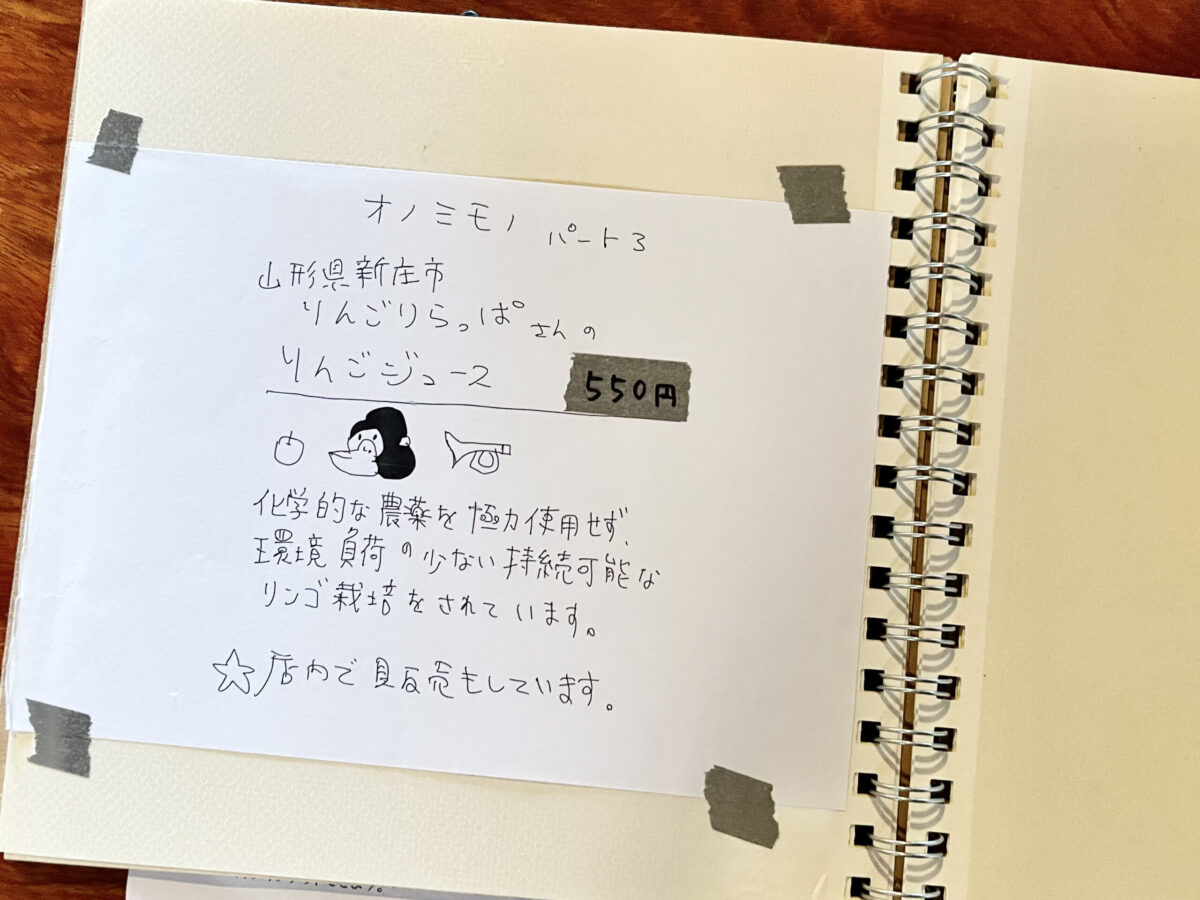 オノミモノ パート3
山形県新庄市
りんごりらっぱさんの
りんごジュース 550円
化学的な農薬を極力使用せず、
環境負荷の少ない持続可能な
リンゴ栽培をされています。
☆店内で販売もしています。